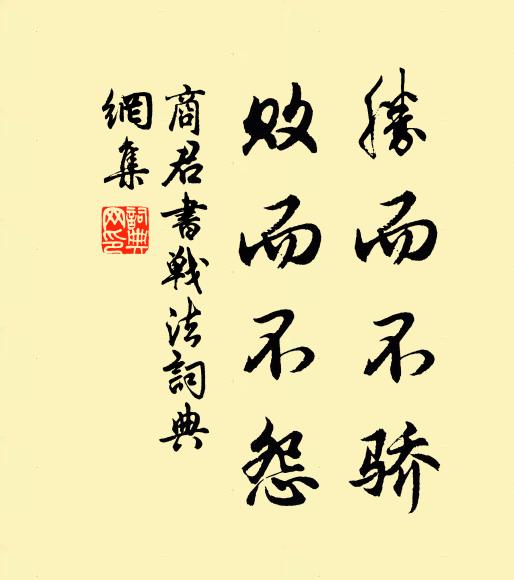 勝而不骄
败而不怨
商君書戰法詞典
網集
詞典網印